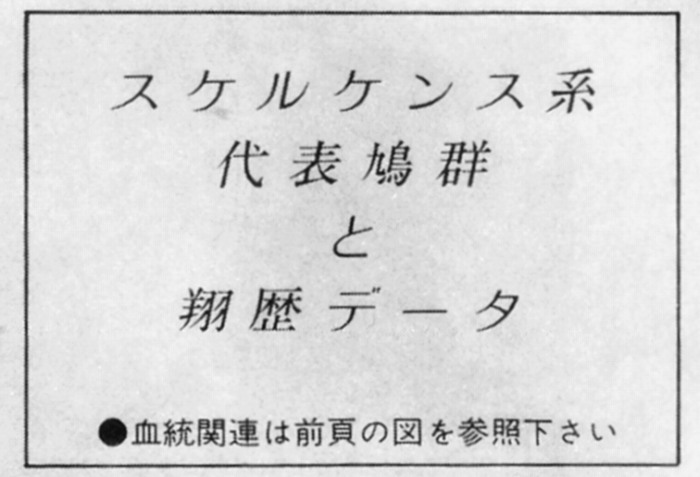 スケルケンス系
代表鳩群
と
翔歴データ
●血統関連は前頁の図を参照下さい